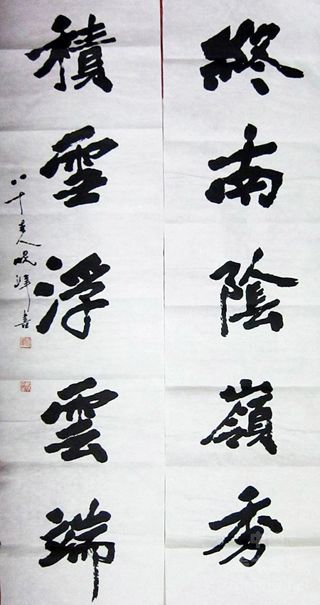 終南陰嶺秀
積雪浮雲端
八十老人